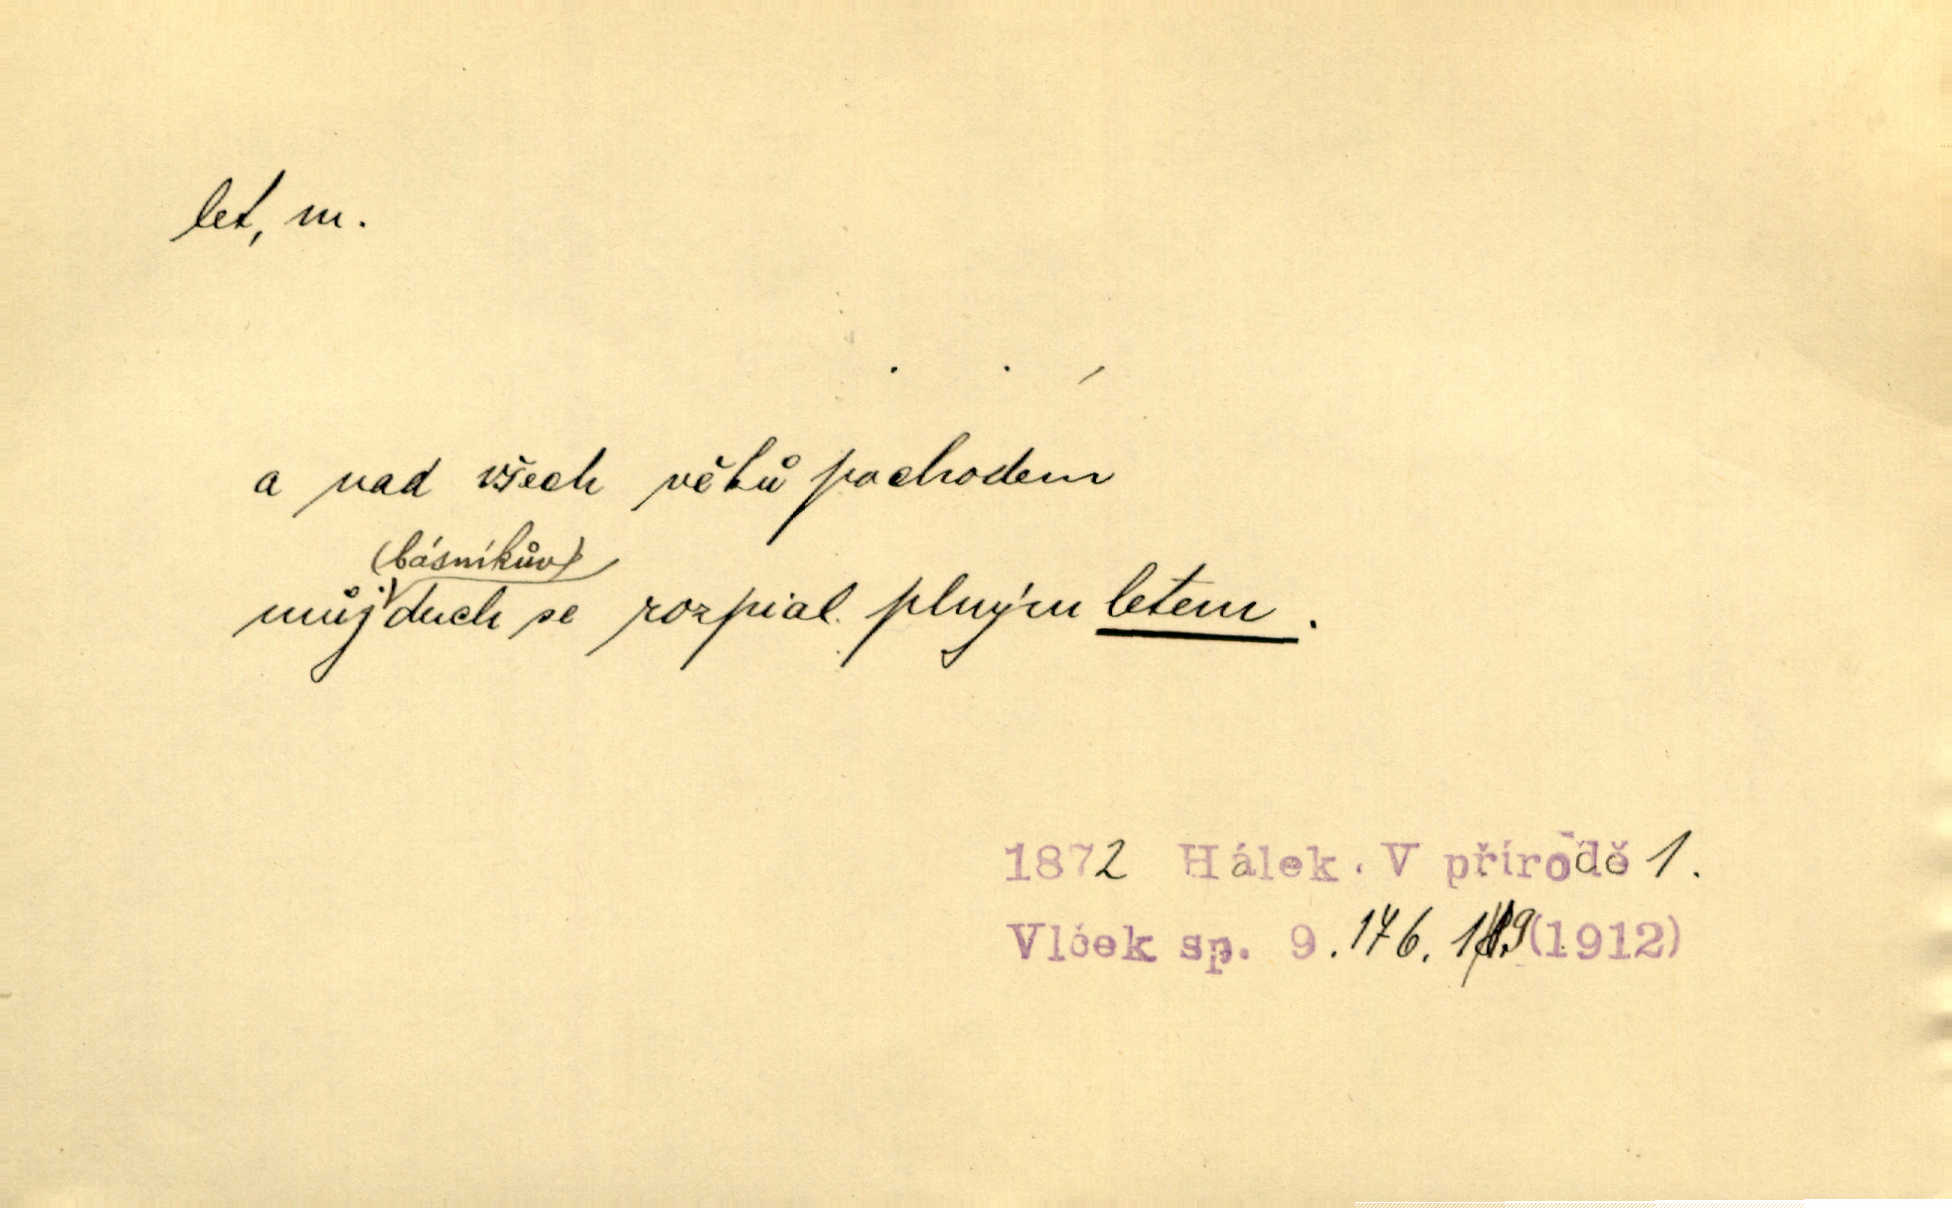 let, m.
a nad všech věků pochodem
(básníkův)
můj duch se rozpial plným letem.
1872 Hálek. V přírodě 1.
Vlček sp. 9. 176. (1912)